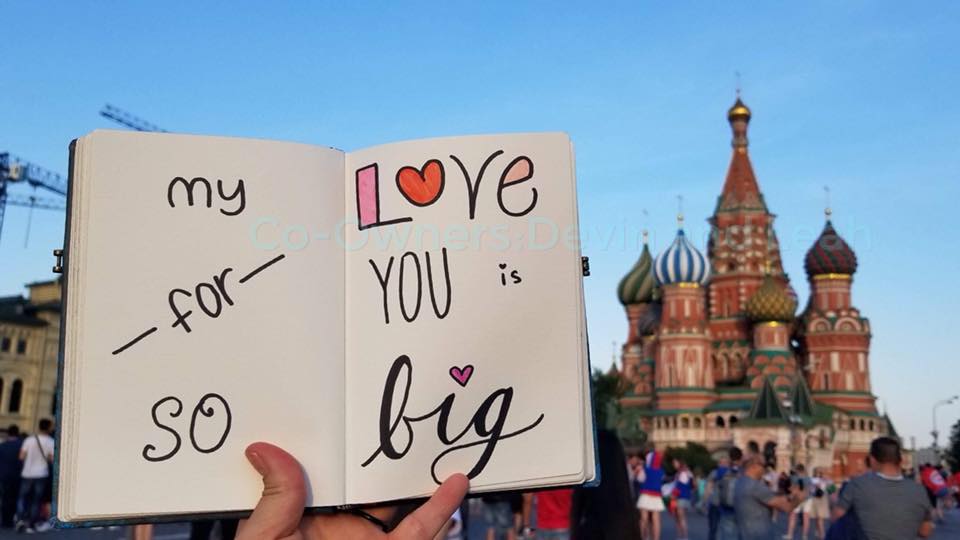 my LOVE
– for – YOU is
so big
Co-Owners: Devin and Leah